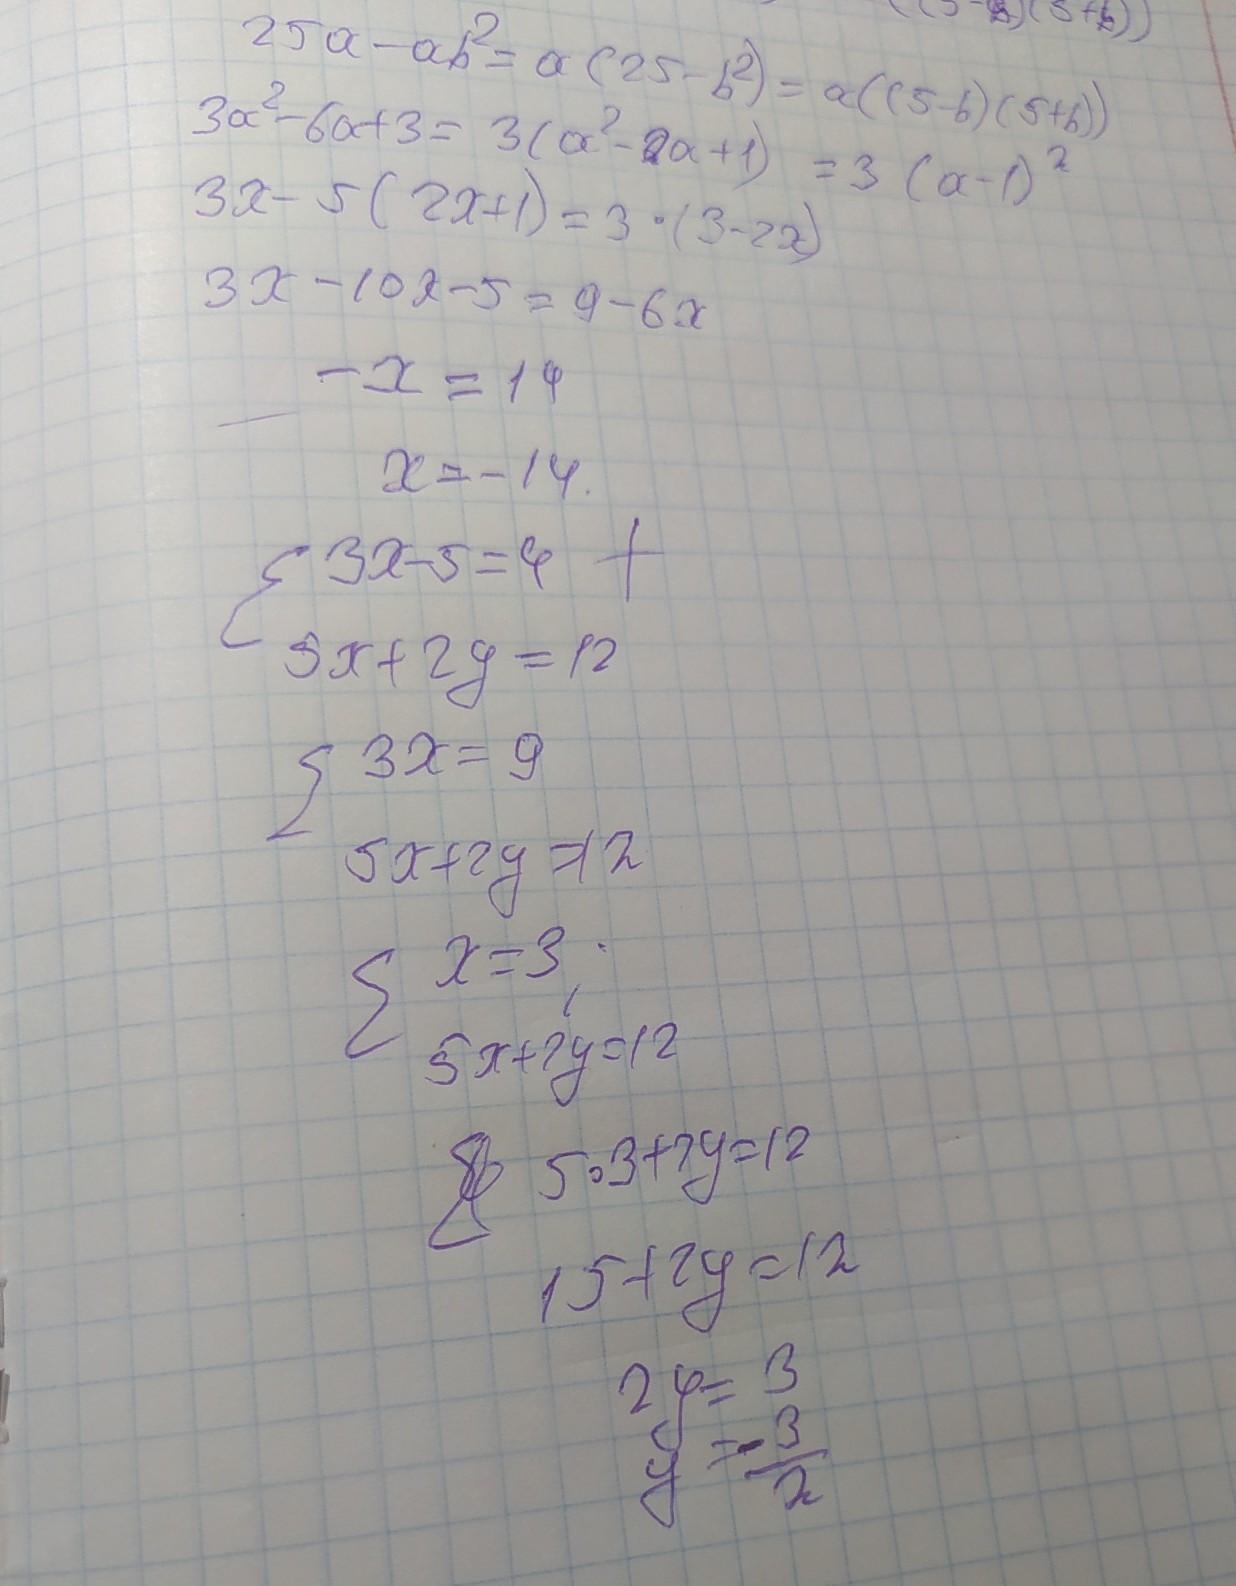 (5-b)(5+b))
25a-ab²=a(25-b²)=a((5-b)(5+b))
3a²-6a+3=3(a²-2a+1)=3(a-1)²
3x-5(2x+1)=3·(3-2x)
3x-10x-5=9-6x
-x=14
x=-14.
{3x-5=4 +
5x+2y=12
{3x=9
5x+2y=12
{x=3;
5x+2y=12
5·3+2y=12
15+2y=12
2y=3
y=-3/2